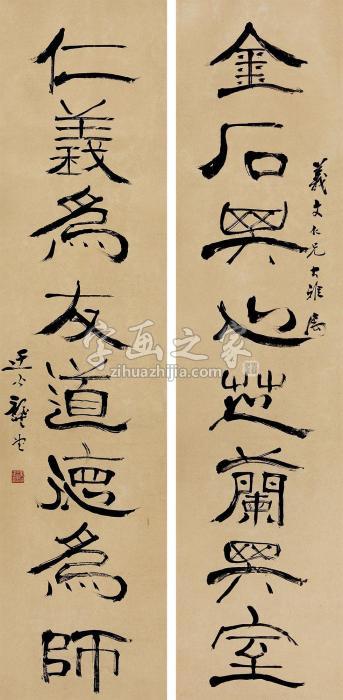 金石其心芝蘭其室
義文仁兄大雅屬
仁義為友道德為師
字画之家
zihuazhijia.com